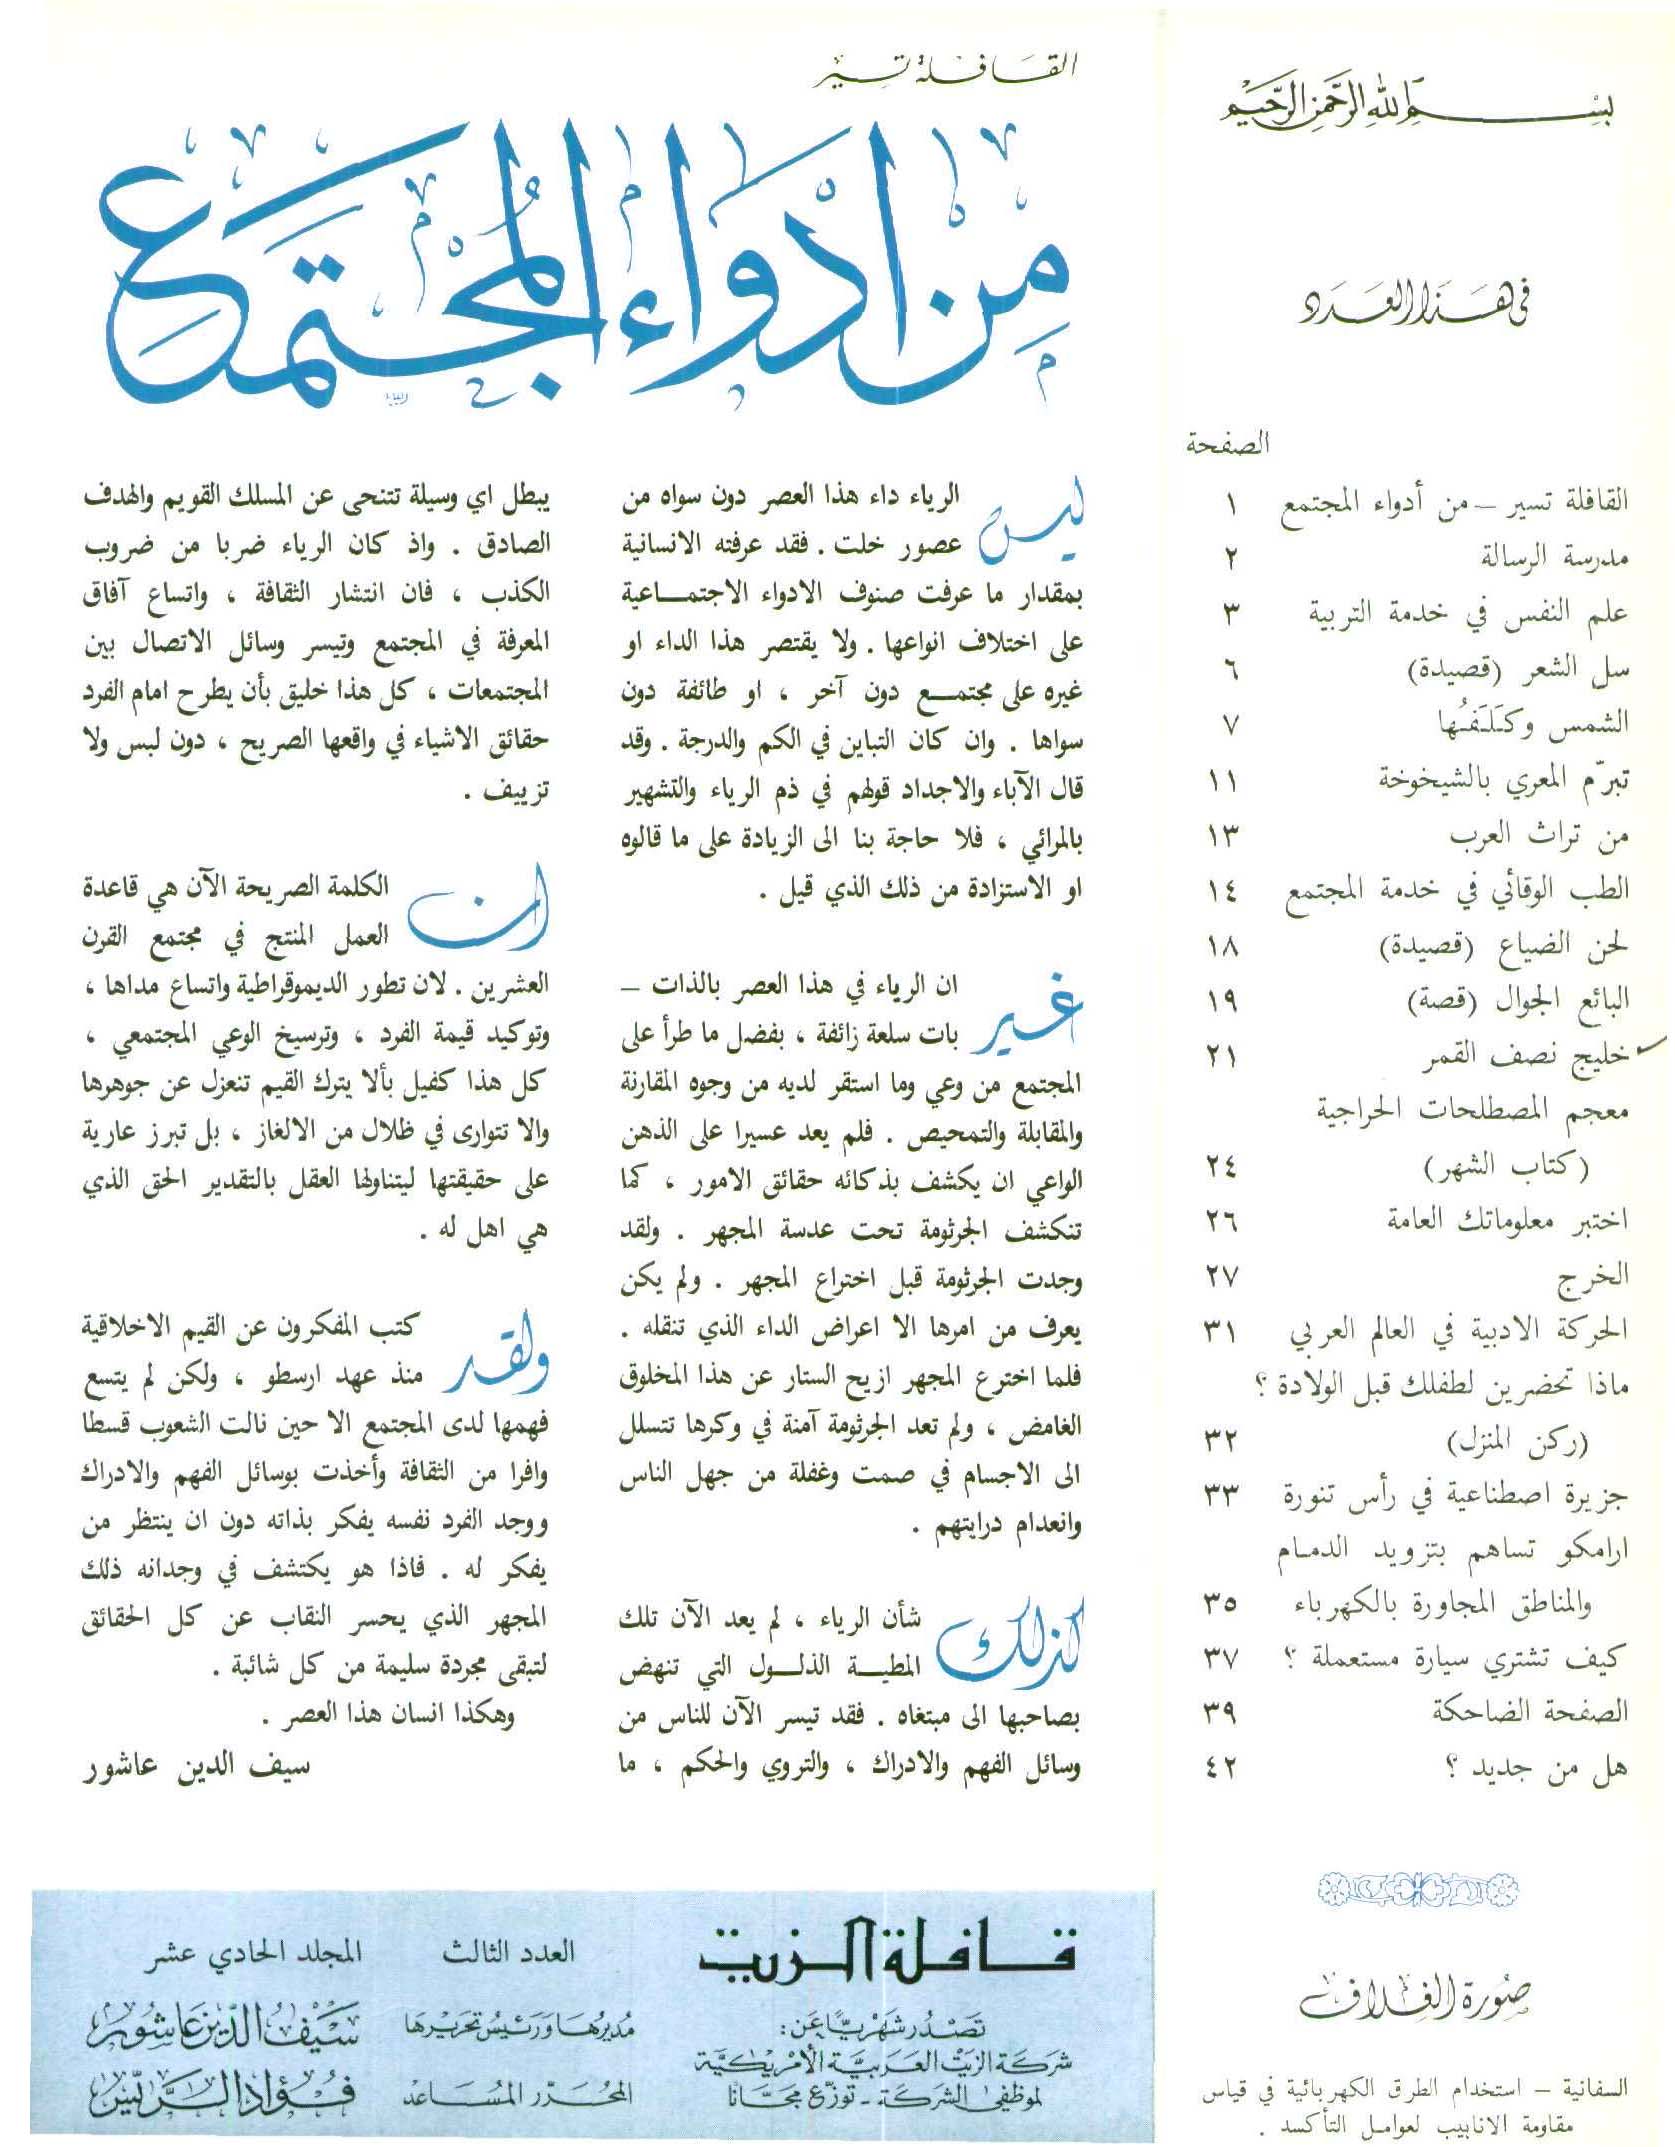 بسم الله الرحمن الرحيم
في هذا العدد
الصفحة
القافلة تسير – من أدواء المجتمع ١
مدرسة الرسالة ٢
علم النفس في خدمة التربية ٣
سل الشعر (قصيدة) ٦
الشمس وكَلَفُها ٧
تبرّم المعري بالشيخوخة ١١
من تراث العرب ١٣
الطب الوقائي في خدمة المجتمع ١٤
لحن الضياع (قصيدة) ١٨
البائع الجوال (قصة) ١٩
خليج نصف القمر ٢١
معجم المصطلحات الحراجية
(كتاب الشهر) ٢٤
اختبر معلوماتك العامة ٢٦
الخرج ٢٧
الحركة الادبية في العالم العربي ٣١
ماذا تحضرين لطفلك قبل الولادة ؟
(ركن المنزل) ٣٢
جزيرة اصطناعية في رأس تنورة ٣٣
ارامكو تساهم بتزويد الدمام
والمناطق المجاورة بالكهرباء ٣٥
كيف تشتري سيارة مستعملة ؟ ٣٧
الصفحة الضاحكة ٣٩
هل من جديد ؟ ٤٢
صورة الغلاف
السفانية – استخدام الطرق الكهربائية في قياس
مقاومة الانابيب لعوامل التأكسد .
القافلة تسير
من ادواء المجتمع
ليس الرياء داء هذا العصر دون سواه من
عصور خلت . فقد عرفته الانسانية
بمقدار ما عرفت صنوف الادواء الاجتماعية
على اختلاف انواعها . ولا يقتصر هذا الداء او
غيره على مجتمع دون آخر ، او طائفة دون
سواها . وان كان التباين في الكم والدرجة . وقد
قال الآباء والاجداد قولهم في ذم الرياء والتشهير
بالمرائي ، فلا حاجة بنا الى الزيادة على ما قالوه
او الاستزادة من ذلك الذي قيل .
غير ان الرياء في هذا العصر بالذات –
بات سلعة زائفة ، بفضل ما طرأ على
المجتمع من وعي وما استقر لديه من وجوه المقارنة
والمقابلة والتمحيص . فلم يعد عسيرا على الذهن
الواعي ان يكشف بذكائه حقائق الامور ، كما
تنكشف الجرثومة تحت عدسة المجهر . ولقد
وجدت الجرثومة قبل اختراع المجهر . ولم يكن
يعرف من امرها الا اعراض الداء الذي تنقله .
فلما اخترع المجهر ازيح الستار عن هذا المخلوق
الغامض ، ولم تعد الجرثومة آمنة في وكرها تتسلل
الى الاجسام في صمت وغفلة من جهل الناس
وانعدام درايتهم .
كذلك شأن الرياء ، لم يعد الآن تلك
المطية الذلول التي تنهض
بصاحبها الى مبتغاه . فقد تيسر الآن للناس من
وسائل الفهم والادراك ، والتروي والحكم ، ما
يبطل اي وسيلة تتنحى عن المسلك القويم والهدف
الصادق . واذ كان الرياء ضربا من ضروب
الكذب ، فان انتشار الثقافة ، واتساع آفاق
المعرفة في المجتمع وتيسر وسائل الاتصال بين
المجتمعات ، كل هذا خليق بأن يطرح امام الفرد
حقائق الاشياء في واقعها الصريح ، دون لبس ولا
تزييف .
ان الكلمة الصريحة الآن هي قاعدة
العمل المنتج في مجتمع القرن
العشرين . لان تطور الديموقراطية واتساع مداها ،
وتوكيد قيمة الفرد ، وترسيخ الوعي المجتمعي ،
كل هذا كفيل بألا يترك القيم تنعزل عن جوهرها
والا تتوارى في ظلال من الالغاز ، بل تبرز عارية
على حقيقتها ليتناولها العقل بالتقدير الحق الذي
هي اهل له .
ولقد كتب المفكرون عن القيم الاخلاقية
منذ عهد ارسطو ، ولكن لم يتسع
فهمها لدى المجتمع الا حين نالت الشعوب قسطا
وافرا من الثقافة وأخذت بوسائل الفهم والادراك
ووجد الفرد نفسه يفكر بذاته دون ان ينتظر من
يفكر له . فاذا هو يكتشف في وجدانه ذلك
المجهر الذي يحسر النقاب عن كل الحقائق
لتبقى مجردة سليمة من كل شائبة .
وهكذا انسان هذا العصر .
سيف الدين عاشور
قافلة الزيت
تصدر شهريًا عن :
شركة الزيت العربية الأمريكية
لموظفي الشركة - توزع مجانًا
العدد الثالث المجلد الحادي عشر
مديرها ورئيس تحريرها سيف الدين عاشور
المحرر المساعد فؤاد الريس